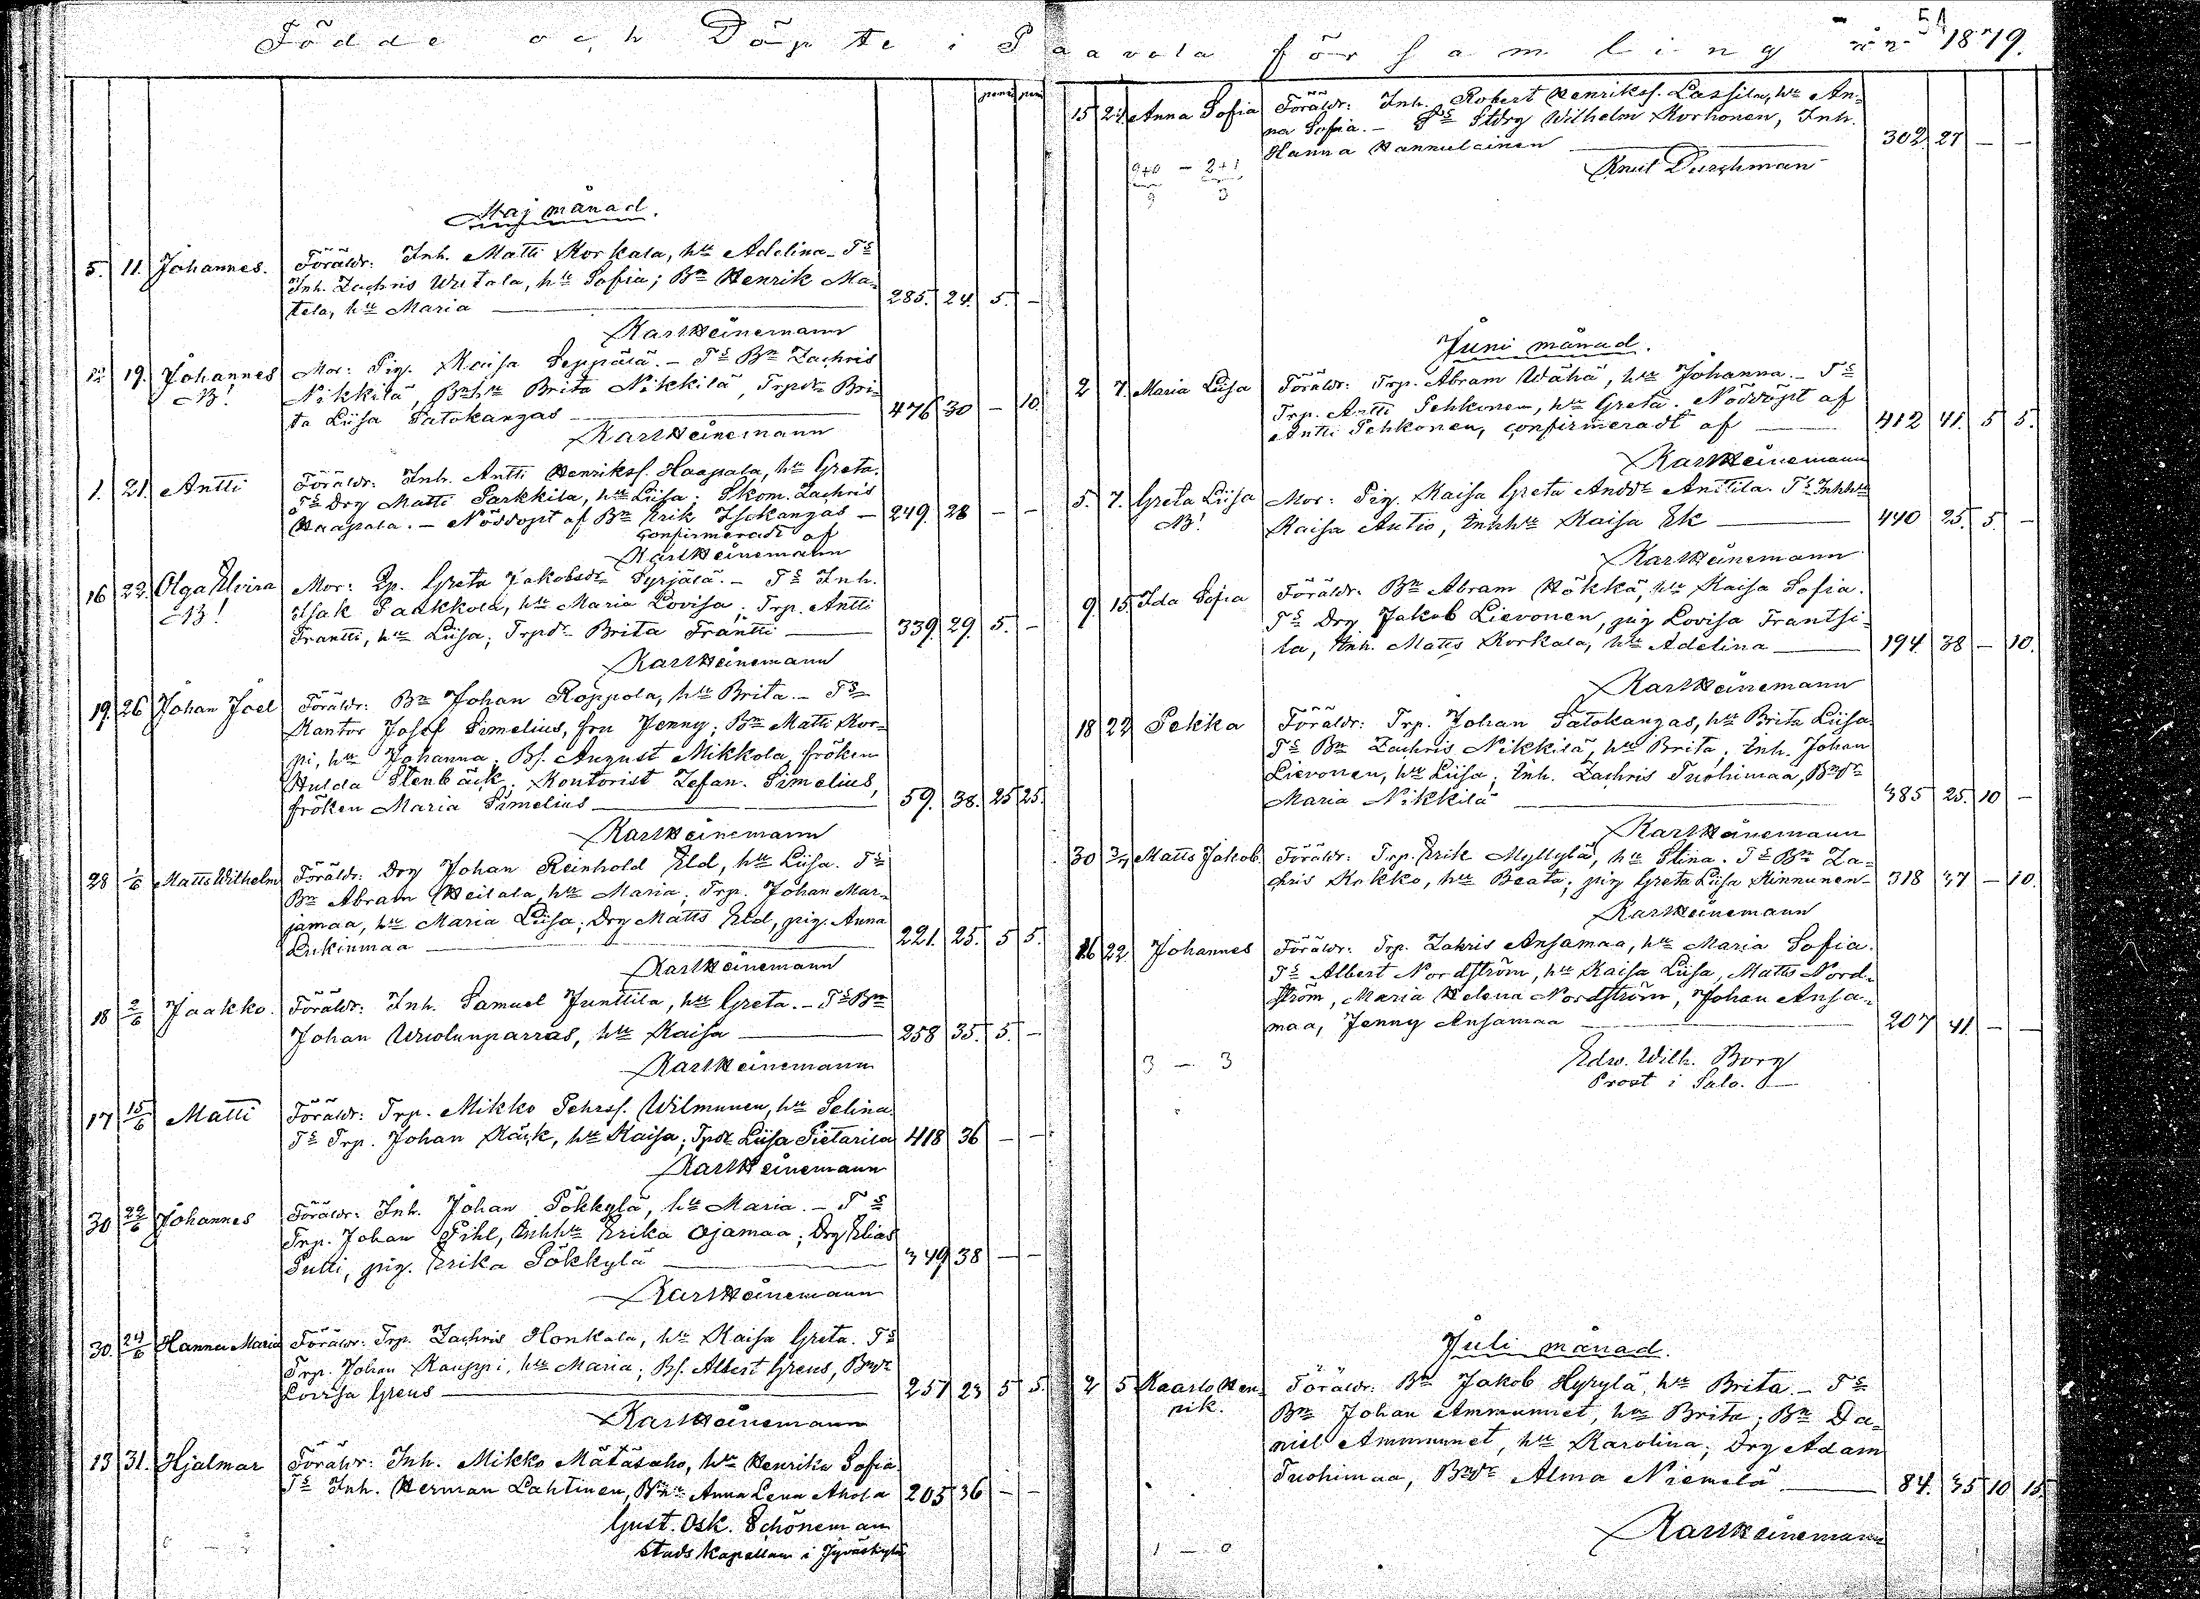 Födde och Döpte i Paavola församling år 1879.
51
Maj månad.
5. 11. Johannes. Föräldr: Inh. Matti Korkala, hu Adelina. Ts
Inh. Zachris Uutala, hu Sofia; Bn Henrik Ma-
tela, hu Maria 285. 24. 5. –
Karl Heinemann
12 19. Johannes Mor: Pig. Kaisa Seppälä. – Ts Bn Zachris
N3! Nikkilä, Bnhu Brita Nikkilä, Trpdr Bri-
ta Liisa Satokangas 476 30 – 10.
Karl Heinemann
1. 21. Antti Föräldr: Inh. Antti Henrikss. Haapala, hu Greta.
Ts Drg Matti Parkkila, hu Liisa; Skom. Zachris
Haapala. – Nöddöpt af Bn Erik Isokangas – 249. 28 – –
confirmeradt af
Karl Heinemann
16 22. Olga Elvira Mor: Ep. Greta Jakobsdr Syrjälä. – Ts Inh.
N3! Isak Paakkola, hu Maria Lovisa; Trp. Antti
Frantti, hu Liisa; Trpdr Brita Frantti 339. 29. 5. –
Karl Heinemann
19. 26 Johan Joel Föräldr: Bn Johan Roppola, hu Brita. – Ts
Kantor Josef Simelius, fru Jenny; Bn Matti Kor-
pi, hu Johanna; Bs. August Mikkola, fröken
Hulda Stenbäck; Kontorist Zefan. Simelius,
fröken Maria Simelius 59. 38. 25 25.
Karl Heinemann
28 1/6 Matts Wilhelm Föräldr: Drg Johan Reinhold Eld, hu Liisa. Ts
Bn Abram Heilala, hu Maria; Trp. Johan Mar-
jamaa, hu Maria Liisa; Drg Matts Eld, pig. Anna
Lukinmaa 221. 25. 5 5.
Karl Heinemann
18 2/6 Jaakko. Föräldr: Inh. Samuel Junttila, hu Greta. – Ts Bn
Johan Wuolunparras, hu Kaisa 258 35. 5. –
Karl Heinemann
17 15/6 Matti Föräldr: Trp. Mikko Pehrss. Wilmunen, hu Selina.
Ts Trp. Johan Käck, hu Kaisa; Tpdr Liisa Pietarila 418 36 – –
Karl Heinemann
30 22/6 Johannes Föräldr: Inh. Johan Pökkylä, hu Maria. – Ts
Trp. Johan Pihl, Inhhu Erika Ojamaa; Drg Elias
Putti, pig. Erika Pökkylä 349 38 – –
Karl Heinemann
30. 24/6 Hanna Maria Föräldr: Trp. Zachris Honkala, hu Kaisa Greta. Ts
Trp. Johan Kauppi, hu Maria; Bs. Albert Greus, Bndr
Lovisa Greus 257 23 5 5.
Karl Heinemann
13 31. Hjalmar Föräldr: Inh. Mikko Mätäsaho, hu Henrika Sofia
Ts Inh. Herman Lahtinen, Bnhu Anna Lena Ahola 205 36 – –
Gust. Osk. Schöneman
Stads Kapellan i Jyväskylä
15 24. Anna Sofia Föräldr: Inh. Robert Henrikss. Lassila, hu An-
na Sofia. – Ts Stdrg Wilhelm Korhonen, Inh.
Hanna Hannulainen 302 27 – –
9+0 – 2+1
9 3
Knut Durchman
Juni månad.
2 7. Maria Liisa Föräldr: Trp. Abram Wähä, hu Johanna. – Ts
Trp. Antti Pehkonen, hu Greta. Nöddöpt af
Antti Pehkonen, confirmeradt af 412 41. 5 5.
Karl Heinemann
5. 7. Greta Liisa Mor: Pig. Kaisa Greta Andsdr Anttila. Ts Inhhu
N3! Kaisa Autio, Inhhu Kaisa Ek 440 25. 5. –
Karl Heinemann
9. 15 Ida Sofia Föräldr: Bn Abram Hökkä, hu Kaisa Sofia.
Ts Drg Jakob Lievonen, pig Lovisa Frantsi-
la, Inh. Matts Korkala, hu Adelina 194. 38 – 10.
Karl Heinemann
18 22 Pekka Föräldr: Trp. Johan Satokangas, hu Brita Liisa
Ts Bn Zachris Nikkilä, hu Brita; Inh. Johan
Lievonen, hu Liisa; Inh. Zachris Tuohimaa, Bndr
Maria Nikkilä 385 25. 10 –
Karl Heinemann
30 3/7 Matts Jakob Föräldr: Trp. Erik Myllylä, hu Stina. Ts Bn Za-
chris Kokko, hu Beata; pig Greta Liisa Kinnunen 318 37 – 10.
Karl Heinemann
16 22 Johannes Föräldr: Trp. Zakris Ansamaa, hu Maria Sofia.
Ts Albert Nordström, hu Kaisa Liisa, Matts Nord-
ström, Maria Helena Nordström, Johan Ansa-
maa, Jenny Ansamaa 207 41. – –
3 – 3
Edw. Wilh. Borg
Prost i Salo.
Juli månad.
2 5 Kaarlo Hen- Föräldr: Bn Jakob Hyrylä, hu Brita. – Ts
rik. Bn Johan Ammunnet, hu Brita; Bn Da-
niel Ammunnet, hu Karolina; Drg Adam
Tuohimaa, Bndr Alma Niemelä 84. 35 10 15.
1 – 0
Karl Heinemann